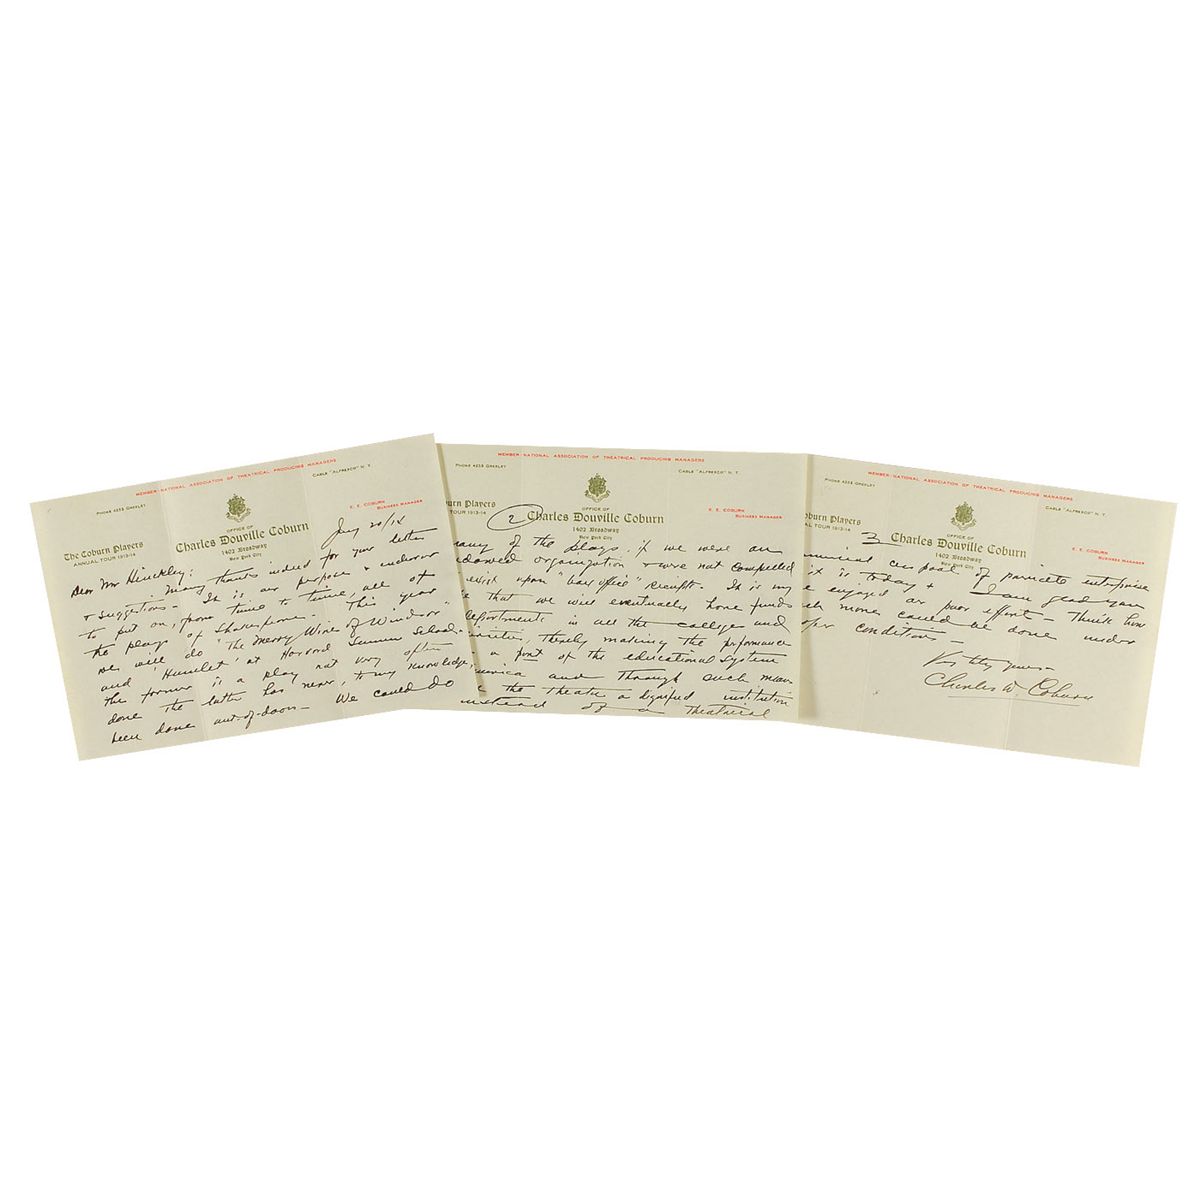 MEMBER-NATIONAL ASSOCIATION OF THEATRICAL PRODUCING MANAGERS
PHONE 4253 GREELEY
CABLE "ALFRESCO" N. Y.
The Coburn Players
ANNUAL TOUR 1913-14
OFFICE OF
Charles Douville Coburn
1402 Broadway
New York City
E. E. COBURN
BUSINESS MANAGER
Dear Mr Hinckley:
Many thanks indeed for your letter
+ suggestions - It is our purpose + endeavor
to put on, from time to time, all of
the plays of Shakespeare - This year
we will do "The Merry Wives of Windsor"
and 'Hamlet' at Harvard Summer School -
the former is a play not very often
done the latter has never, to my knowledge,
been done out-of-doors - We could do
MEMBER-NATIONAL ASSOCIATION OF THEATRICAL PRODUCING MANAGERS
PHONE 4253 GREELEY
CABLE "ALFRESCO" N. Y.
burn Players
TOUR 1913-14
2
OFFICE OF
Charles Douville Coburn
1402 Broadway
New York City
E. E. COBURN
BUSINESS MANAGER
many of the plays if we were an
endowed organization + were not compelled
upon "box office" receipts. It is my
that we will eventually have funds
departments in all the colleges and
thereby making the performance
a part of the educational system
and through such means
the theatre a dignified institution
instead of a theatrical
MEMBER-NATIONAL ASSOCIATION OF THEATRICAL PRODUCING MANAGERS
PHONE 4253 GREELEY
CABLE "ALFRESCO" N. Y.
oburn Players
AL TOUR 1913-14
3
OFFICE OF
Charles Douville Coburn
1402 Broadway
New York City
E. E. COBURN
BUSINESS MANAGER
of private enterprise
it is today + I am glad you
engaged our poor effort - Think how
much more could be done under
proper conditions -
Very truly yours
Charles D. Coburn